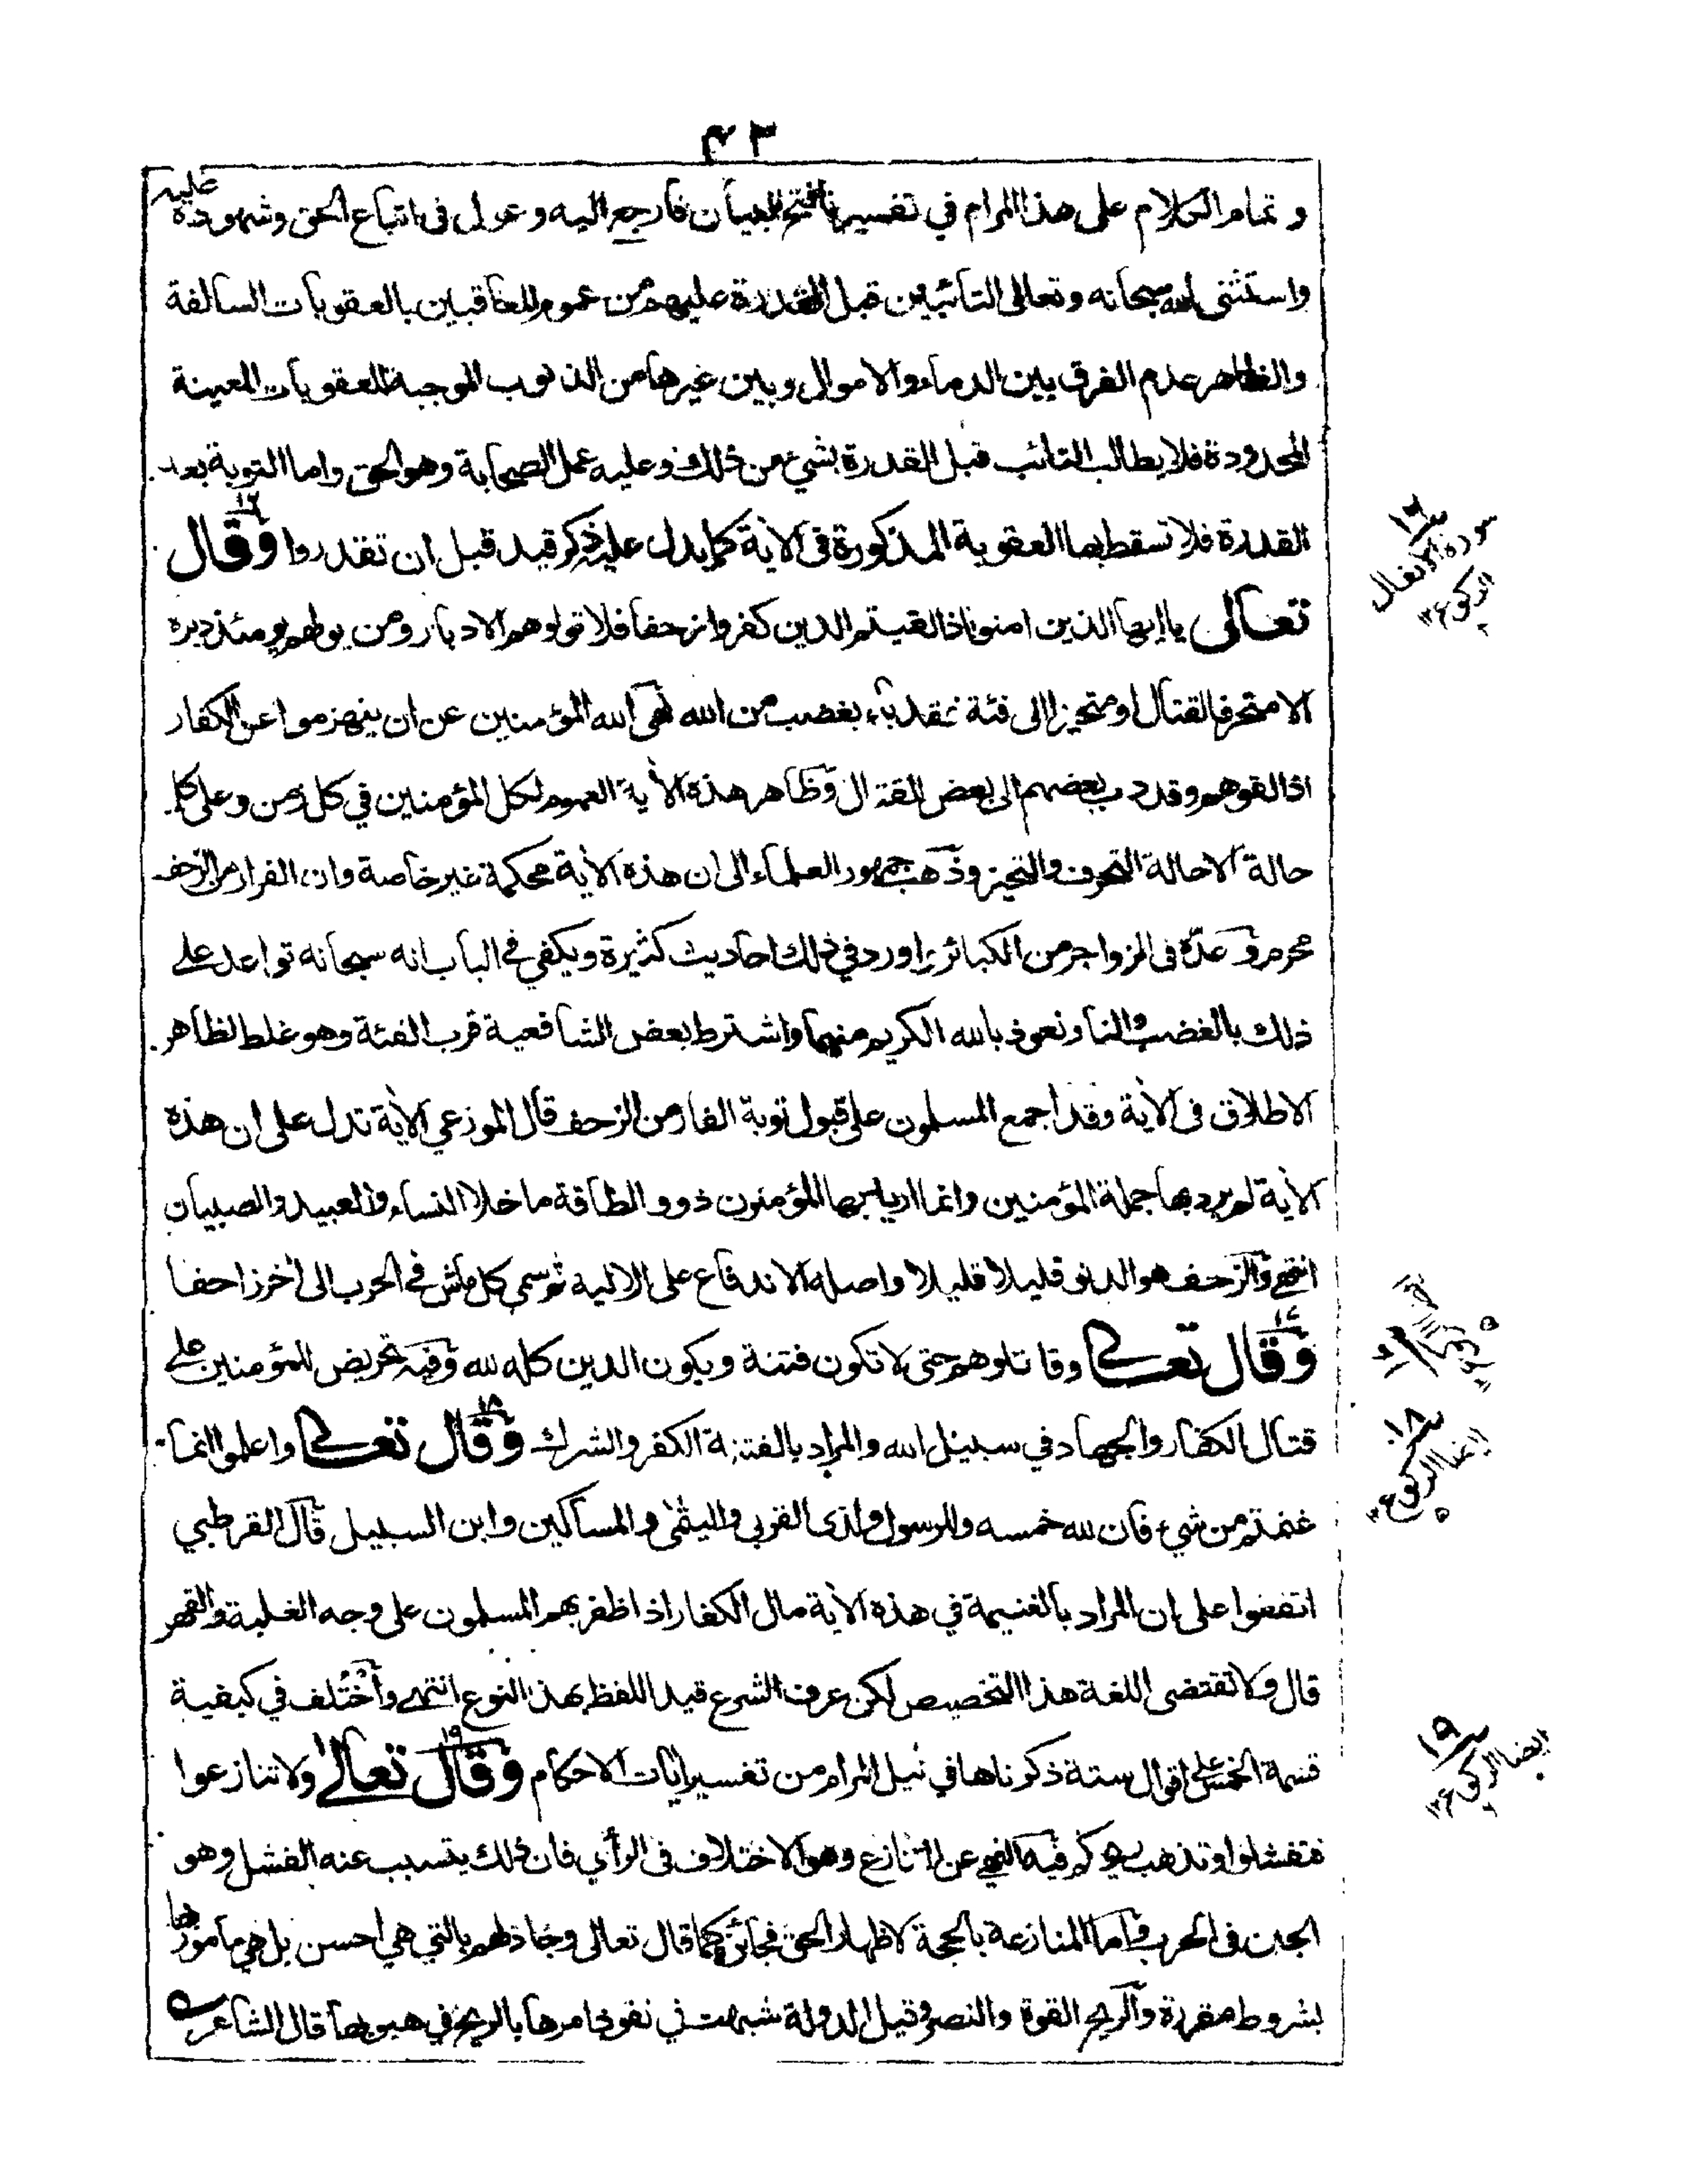 ٤٣
و تمام الكلام على هذا المرام في تفسيرنا فتح البيان فارجع اليه وعول فى اتباع الحق وشهوده عليه
واستثنى الله سبحانه وتعالى التائبين قبل القدرة عليهم من عموم المعاقبين بالعقوبات السالفة
والظاهر عدم الفرق بين الدماء والاموال وبين غيرها من الذنوب الموجبة للعقوبات المعينة
المحدودة فلا يطالب التائب قبل القدرة بشئ من ذلك وعليه عمل الصحابة وهو الحق واما التوبة بعد
القدرة فلا تسقط بها العقوبة المذكورة فى الأية كما يدل عليه ذكر قيد قبل ان تقدروا وقال
تعالى يا ايها الذين امنوا اذا لقيتم الذين كفروا زحفا فلا تولوهم الادبار ومن يولهم يومئذ دبره
الا متحرفا لقتال او متحيزا الى فئة فقد باء بغضب من الله نهى الله المؤمنين عن ان ينهزموا عن الكفار
اذا لقوهم وقد دب بعضهم الى بعض للقتال وظاهر هذه الأية العموم لكل المؤمنين في كل زمن وعلى كل
حالة الا حالة التحرف والتحيز وذهب جمهور العلماء الى ان هذه الأية محكمة غير خاصة وان الفرار من الزحف
محرم وعده فى الزواجر من الكبائر و اورد في ذلك احاديث كثيرة ويكفى في الباب انه سبحانه تواعد على
ذلك بالغضب والنار نعوذ بالله الكريم منهما واشترط بعض الشافعية قرب الفئة وهو غلط لظاهر
الاطلاق فى الأية وقد اجمع المسلمون على قبول توبة الفار من الزحف قال الموزعي الأية تدل على ان هذه
الأية لم يرد بها جملة المؤمنين وانما اريد بها المؤمنون ذوو الطاقة ما خلا النساء والعبيد والصبيان
انتهى والزحف هو الدنو قليلا قليلا واصله الاندفاع على الالية ثم سمي كل ماش في الحرب الى اخر زاحفا
وقال تعالى وقاتلوهم حتى لا تكون فتنة ويكون الدين كله لله وفيه تحريض للمؤمنين على
قتال الكفار والجهاد في سبيل الله والمراد بالفتنة الكفر والشرك وقال تعالى واعلموا انما
غنمتم من شئ فان لله خمسه وللرسول ولذى القربى واليتمٰى والمساكين وابن السبيل قال القرطبي
اتفقوا على ان المراد بالغنيمة في هذه الأية مال الكفار اذا ظفر بهم المسلمون على وجه الغلبة والقهر
قال ولا تقتضى اللغة هذا التخصيص لكن عرف الشرع قيد اللفظ بهذا النوع انتهى واختلف في كيفية
قسمة الخمس على اقوال ستة ذكرناها في نيل المرام من تفسير ايات الاحكام وقال تعالى ولا تنازعوا
فتفشلوا وتذهب ريحكم فيه النهي عن التنازع وهو الاختلاف فى الرأي فان ذلك يتسبب عنه الفشل وهو
الجبن فى الحرب واما المنازعة بالحجة لاظهار الحق فجائزة كما قال تعالى وجادلهم بالتي هي احسن بل هي مأمور بها
بشروط مقررة والريح القوة والنصر وقيل الدولة شبهت في نفوذ امرها بالريح في هبوبها قال الشاعر
١٦
سورة الانفال
الركوع ٢
١٨
ايضا الركوع ٥
١٩
ايضا الركوع ٦